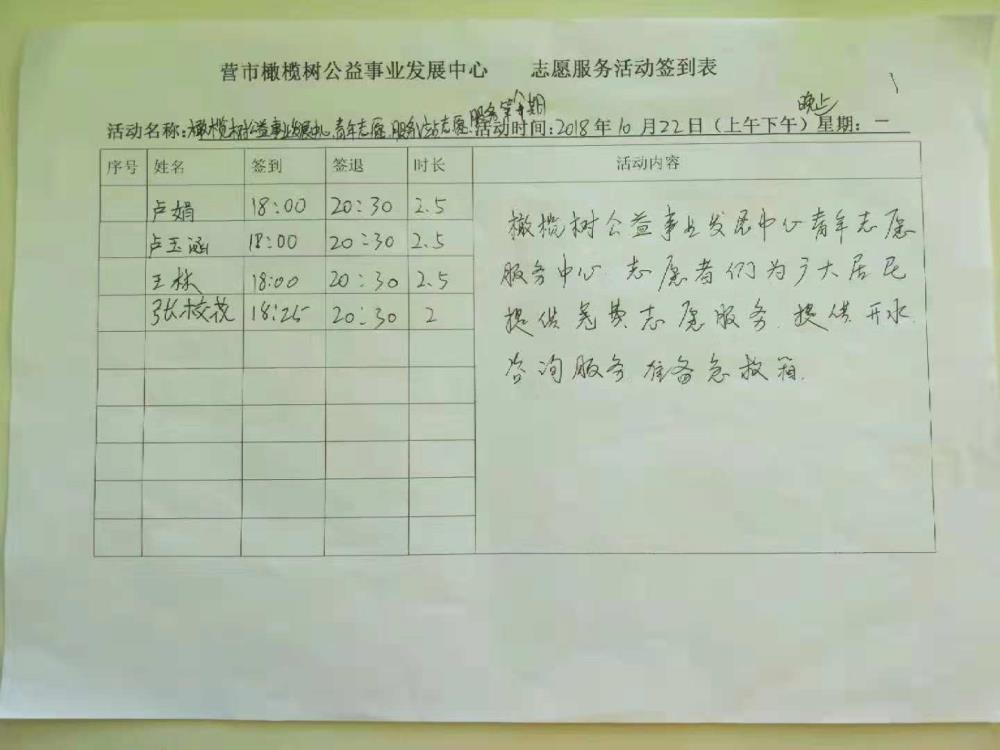 营市橄榄树公益事业发展中心 志愿服务活动签到表
晚上
活动名称:橄榄树公益事业发展中心青年志愿服务 志愿服务第 期 活动时间:2018年10月22日(上午下午)星期:一
序号 姓名 签到 签退 时长 活动内容
卢娟 18:00 20:30 2.5
卢玉涵 18:00 20:30 2.5
王林 18:00 20:30 2.5
张校花 18:25 20:30 2
橄榄树公益事业发展中心青年志愿
服务中心 志愿者们为广大居民
提供免费志愿服务.提供开水.
咨询服务 准备急救箱.